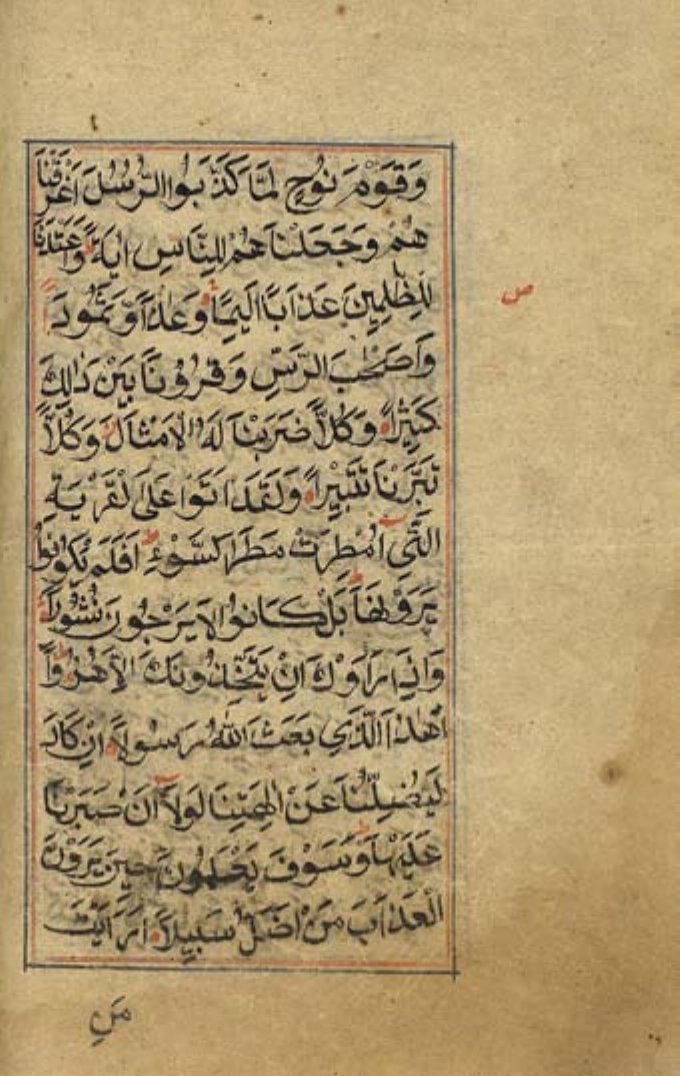 وَقَوْمَ نُوحٍ لَمَّا كَذَّبُوا الرُّسُلَ اَغْرَقْنَا
هُمْ وَجَعَلْنَاهُمْ لِلنَّاسِ ايَةً وَاَعْتَدْنَا
لِلظّٰلِمِينَ عَذَابًا اَلِيمًا وَعَادًا وَثَمُودَا
وَاَصْحٰبَ الرَّسِّ وَقُرُوْنًا بَيْنَ ذٰلِكَ
كَثِيْرًا وَكُلًّا ضَرَبْنَا لَهُ الْاَمْثَالَ وَكُلًّا
تَبَّرْنَا تَتْبِيْرًا وَلَقَدْ اَتَوْا عَلَى لْقَرْيَةِ
الَّتِى اُمْطِرَتْ مَطَرَ السَّوْءِ اَفَلَمْ يَكُونُوا
يَرَوْنَهَا بَلْ كَانُوا لَا يَرْجُونَ نُشُورًا
وَاِذَا رَاَوْكَ اِنْ يَتَّخِذُونَكَ اِلَّا هُزُوًا
اَهٰذَا الَّذِي بَعَثَ اللّٰهُ رَسُولًا اِنْ كَادَ
لَيُضِلُّنَا عَنْ اٰلِهَتِنَا لَوْلَا اَنْ صَبَرْنَا
عَلَيْهَا وَسَوْفَ يَعْلَمُونَ حِينَ يَرَوْنَ
الْعَذَابَ مَنْ اَضَلُّ سَبِيلًا اَرَاَيْتَ
مَنِ